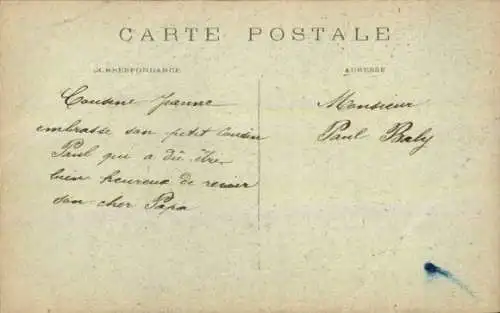 CARTE POSTALE
CORRESPONDANCE
ADRESSE
Cousine Jeanne
embrasse son petit cousin
Paul qui a dû être
bien heureux de revoir
son cher Papa
Monsieur
Paul Baly